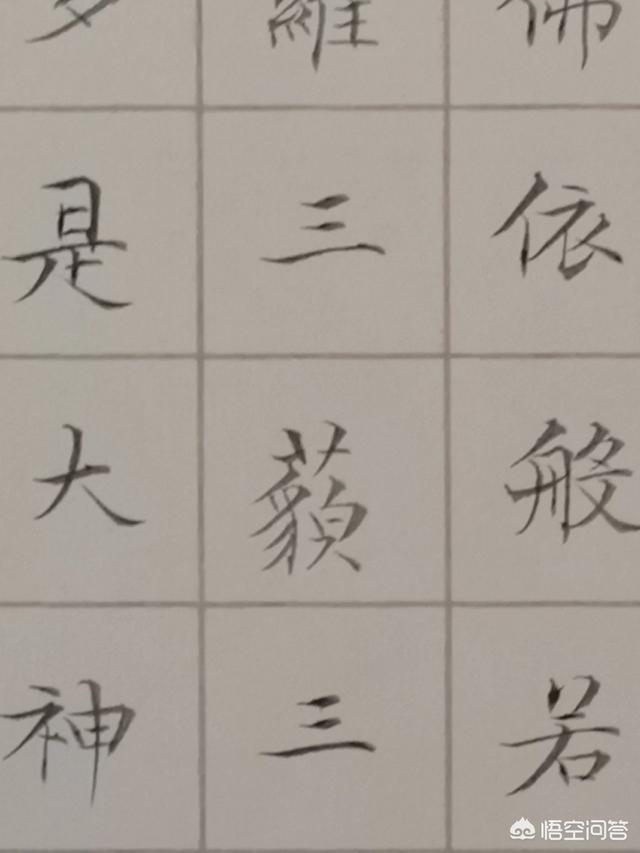 佛依般若
羅三藐三
是大神
悟空问答